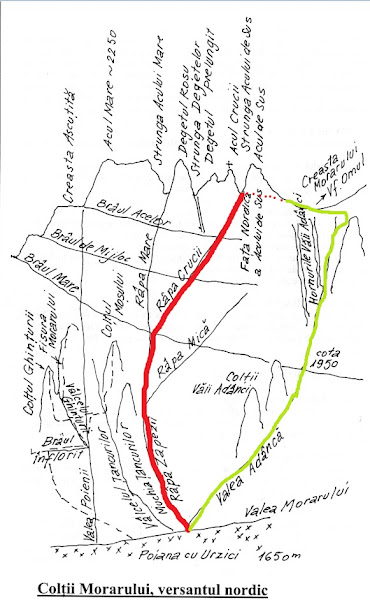 Creasta Ascuțită
Acul Mare ~ 2250
Strunga Acului Mare
Degetul Roșu
Strunga Degetelor
Degetul Prelungit
+ Acul Crucii
Strunga Acului de Sus
Acul de Sus
Creasta
Morarului
Vf. Omul
Brâul Acelor
Brâul de Mijloc
Brâul Mare
Râpa Mare
Râpa Crucii
Fața Nordică
a Acului de Sus
Hornurile Văii Adânci
Colțul Ghințurii
Fisura
Morarului
Colțul
Moșului
Râpa Mică
cota
1950
Colții
Văii Adânci
Brâul
Înflorit
Valea Poienii
Vâlcelul Țancurilor
Muchia Țancurilor
Râpa Zăpezii
Valea Adâncă
Valea Morarului
Poiana cu Urzici 1650m
Colții Morarului, versantul nordic